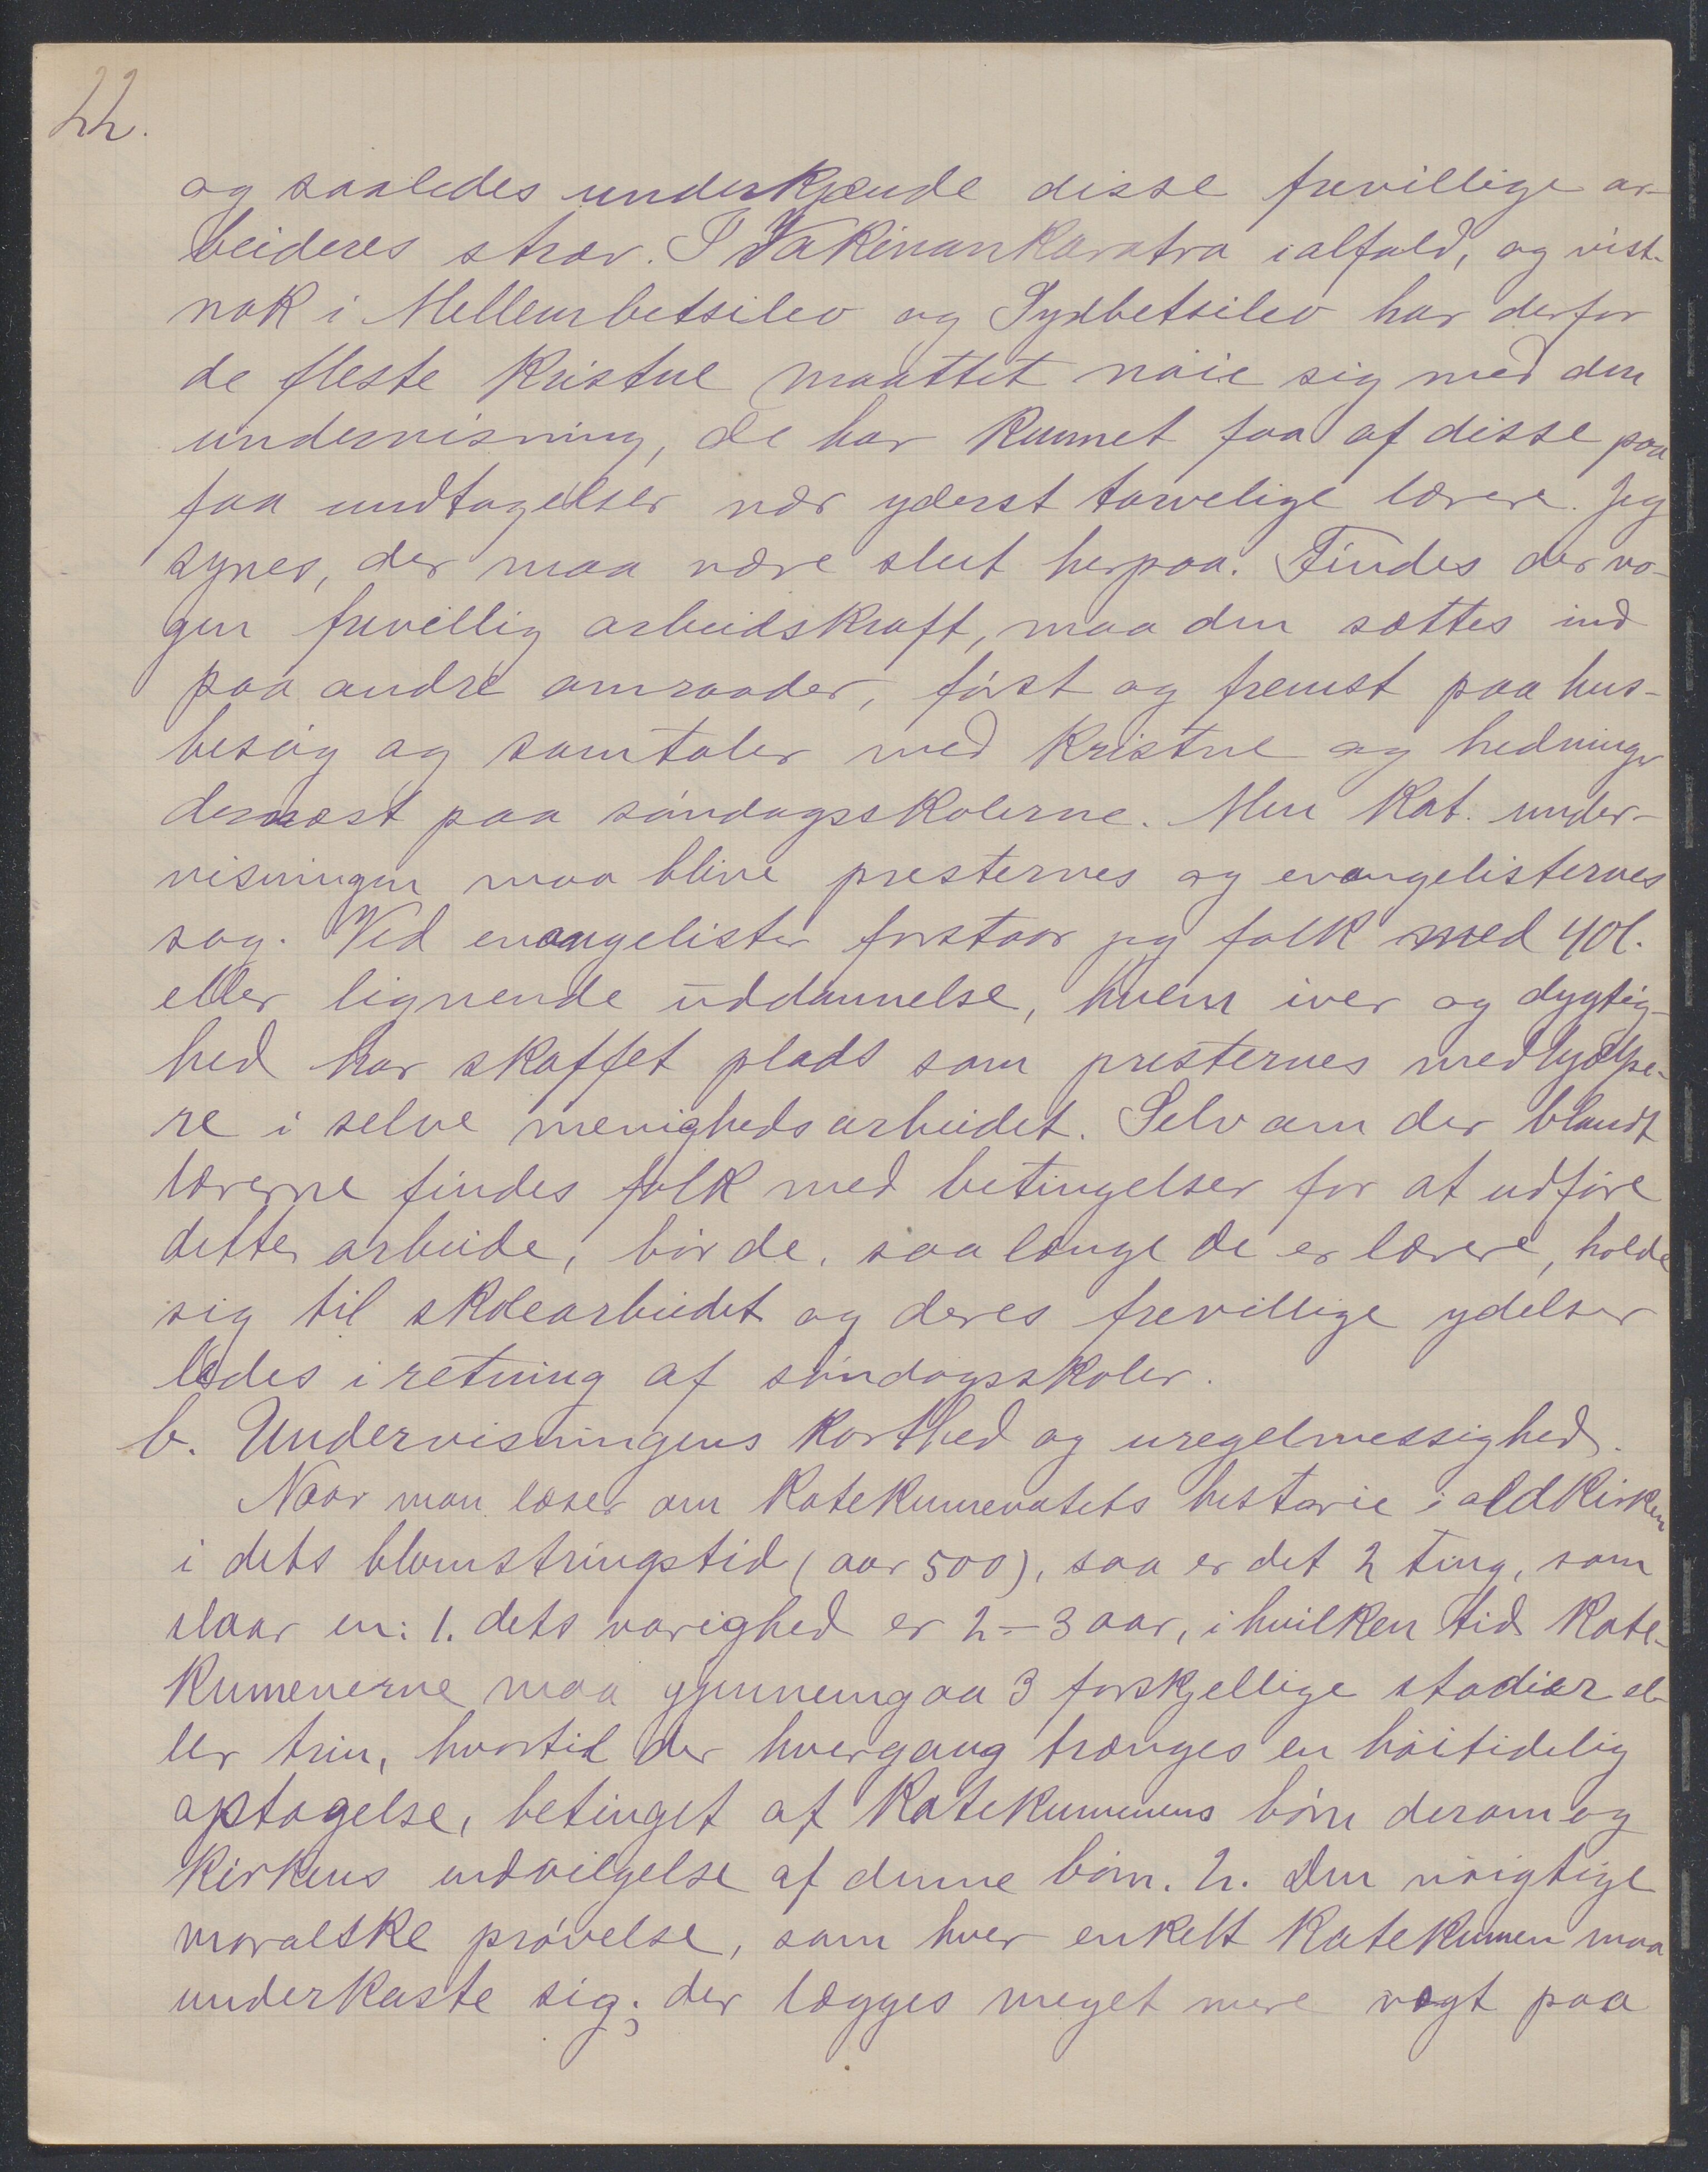 22.
og saaledes underkjende disse frivillige ar-
beideres stræv. I Vakinankaratra ialfald, og vist-
nok i Mellembetsileo og Sydbetsileo har derfor
de fleste kristne maattet nöie sig med den
undervisning, de har kunnet faa af disse paa
faa undtagelser nær yderst tarvelige lærere. Jeg
synes, der maa være slut herpaa. Findes der no-
gen frivillig arbeidskraft, maa den sættes ind
paa andre omraader, först og fremst paa hus-
besög og samtaler med kristne og hedninger
dernæst paa söndagsskolerne. Men kat. under-
visningen maa blive presternes og evangelisternes
sag. Ved evangelister forstaar jeg folk med
eller lignende uddannelse, hvem iver og dygtig-
hed har skaffet plads som presternes medhjælpe-
re i selve menighedsarbeidet. Selv om der blandt
lærerne findes folk med betingelser for at udföre
dette arbeide, bör de, saa længe de er lærere, holde
sig til skolearbeidet og deres frivillige ydelser
ledes i retning af söndagsskoler.
b. Undervisningens korthed og uregelmessighed.
Naar man læser om katekumenatets historie i oldkirken
i dets blomstringstid (aar 500), saa er det 2 ting, som
slaar en: 1. dets varighed er 2-3 aar, i hvilken tid kate-
kumenerne maa gjennemgaa 3 forskjellige stadier el-
ler trin, hvortil der hvergang trænges en höitidelig
optagelse, betinget af katekumenens bön derom og
kirkens indvilgelse af denne bön. 2. Den nöigtige
moralske prövelse, som hver enkelt katekumen maa
underkaste sig; der lægges meget mere vegt paa